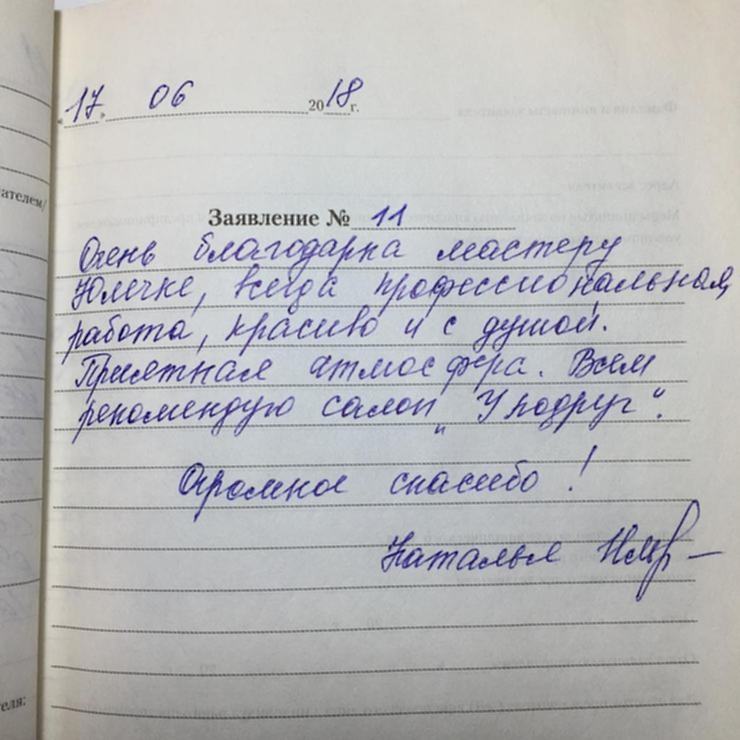 «17» 06 2018 г.
Заявление № 11
Очень благодарна мастеру
Юлечке, всегда профессиональная
работа, красиво и с душой.
Приятная атмосфера. Всем
рекомендую салон „У подруг“.
Огромное спасибо!
Наталья
ателем/
теля: